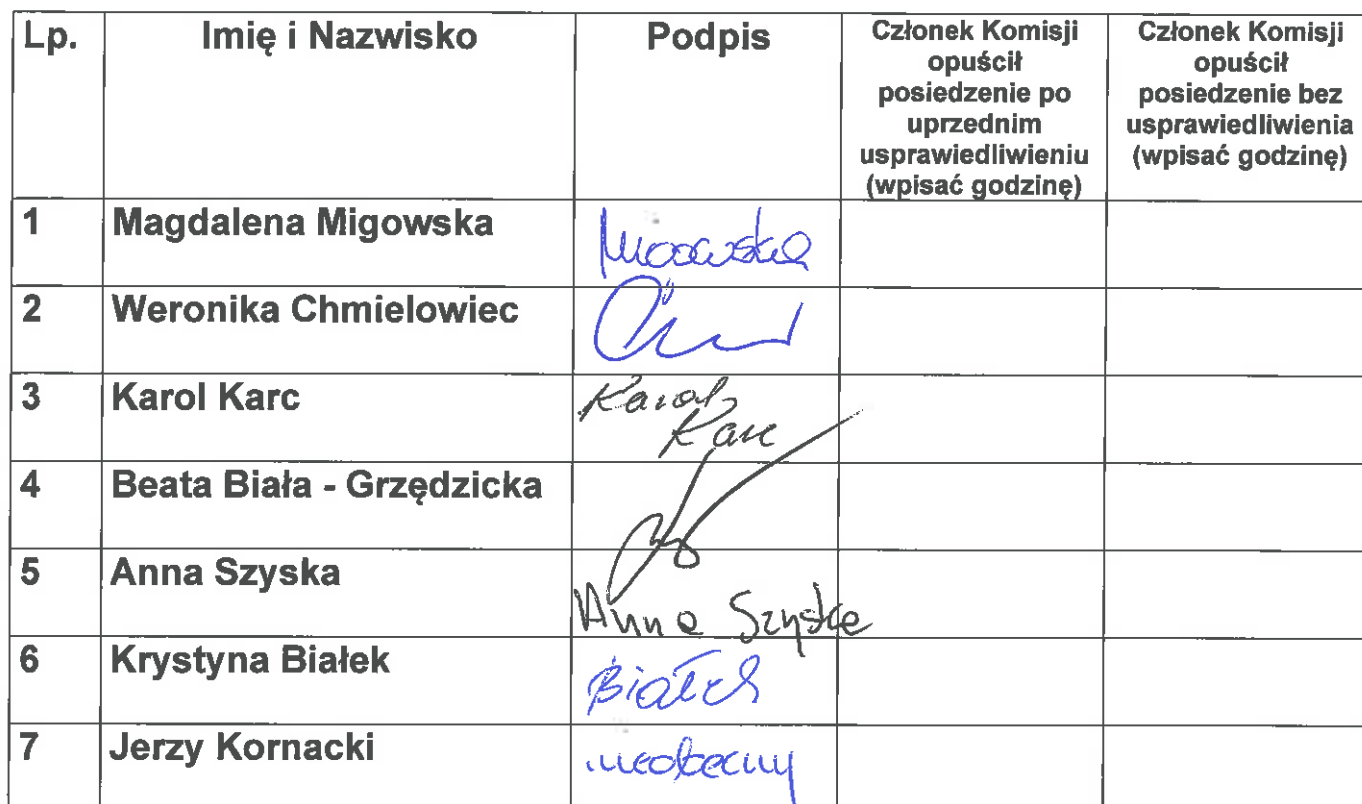 Lp. Imię i Nazwisko Podpis Członek Komisji opuścił posiedzenie po uprzednim usprawiedliwieniu (wpisać godzinę) Członek Komisji opuścił posiedzenie bez usprawiedliwienia (wpisać godzinę)
1 Magdalena Migowska Migowska
2 Weronika Chmielowiec
3 Karol Karc Karol Karc
4 Beata Biała - Grzędzicka
5 Anna Szyska Anna Szyska
6 Krystyna Białek Białek
7 Jerzy Kornacki nieobecny